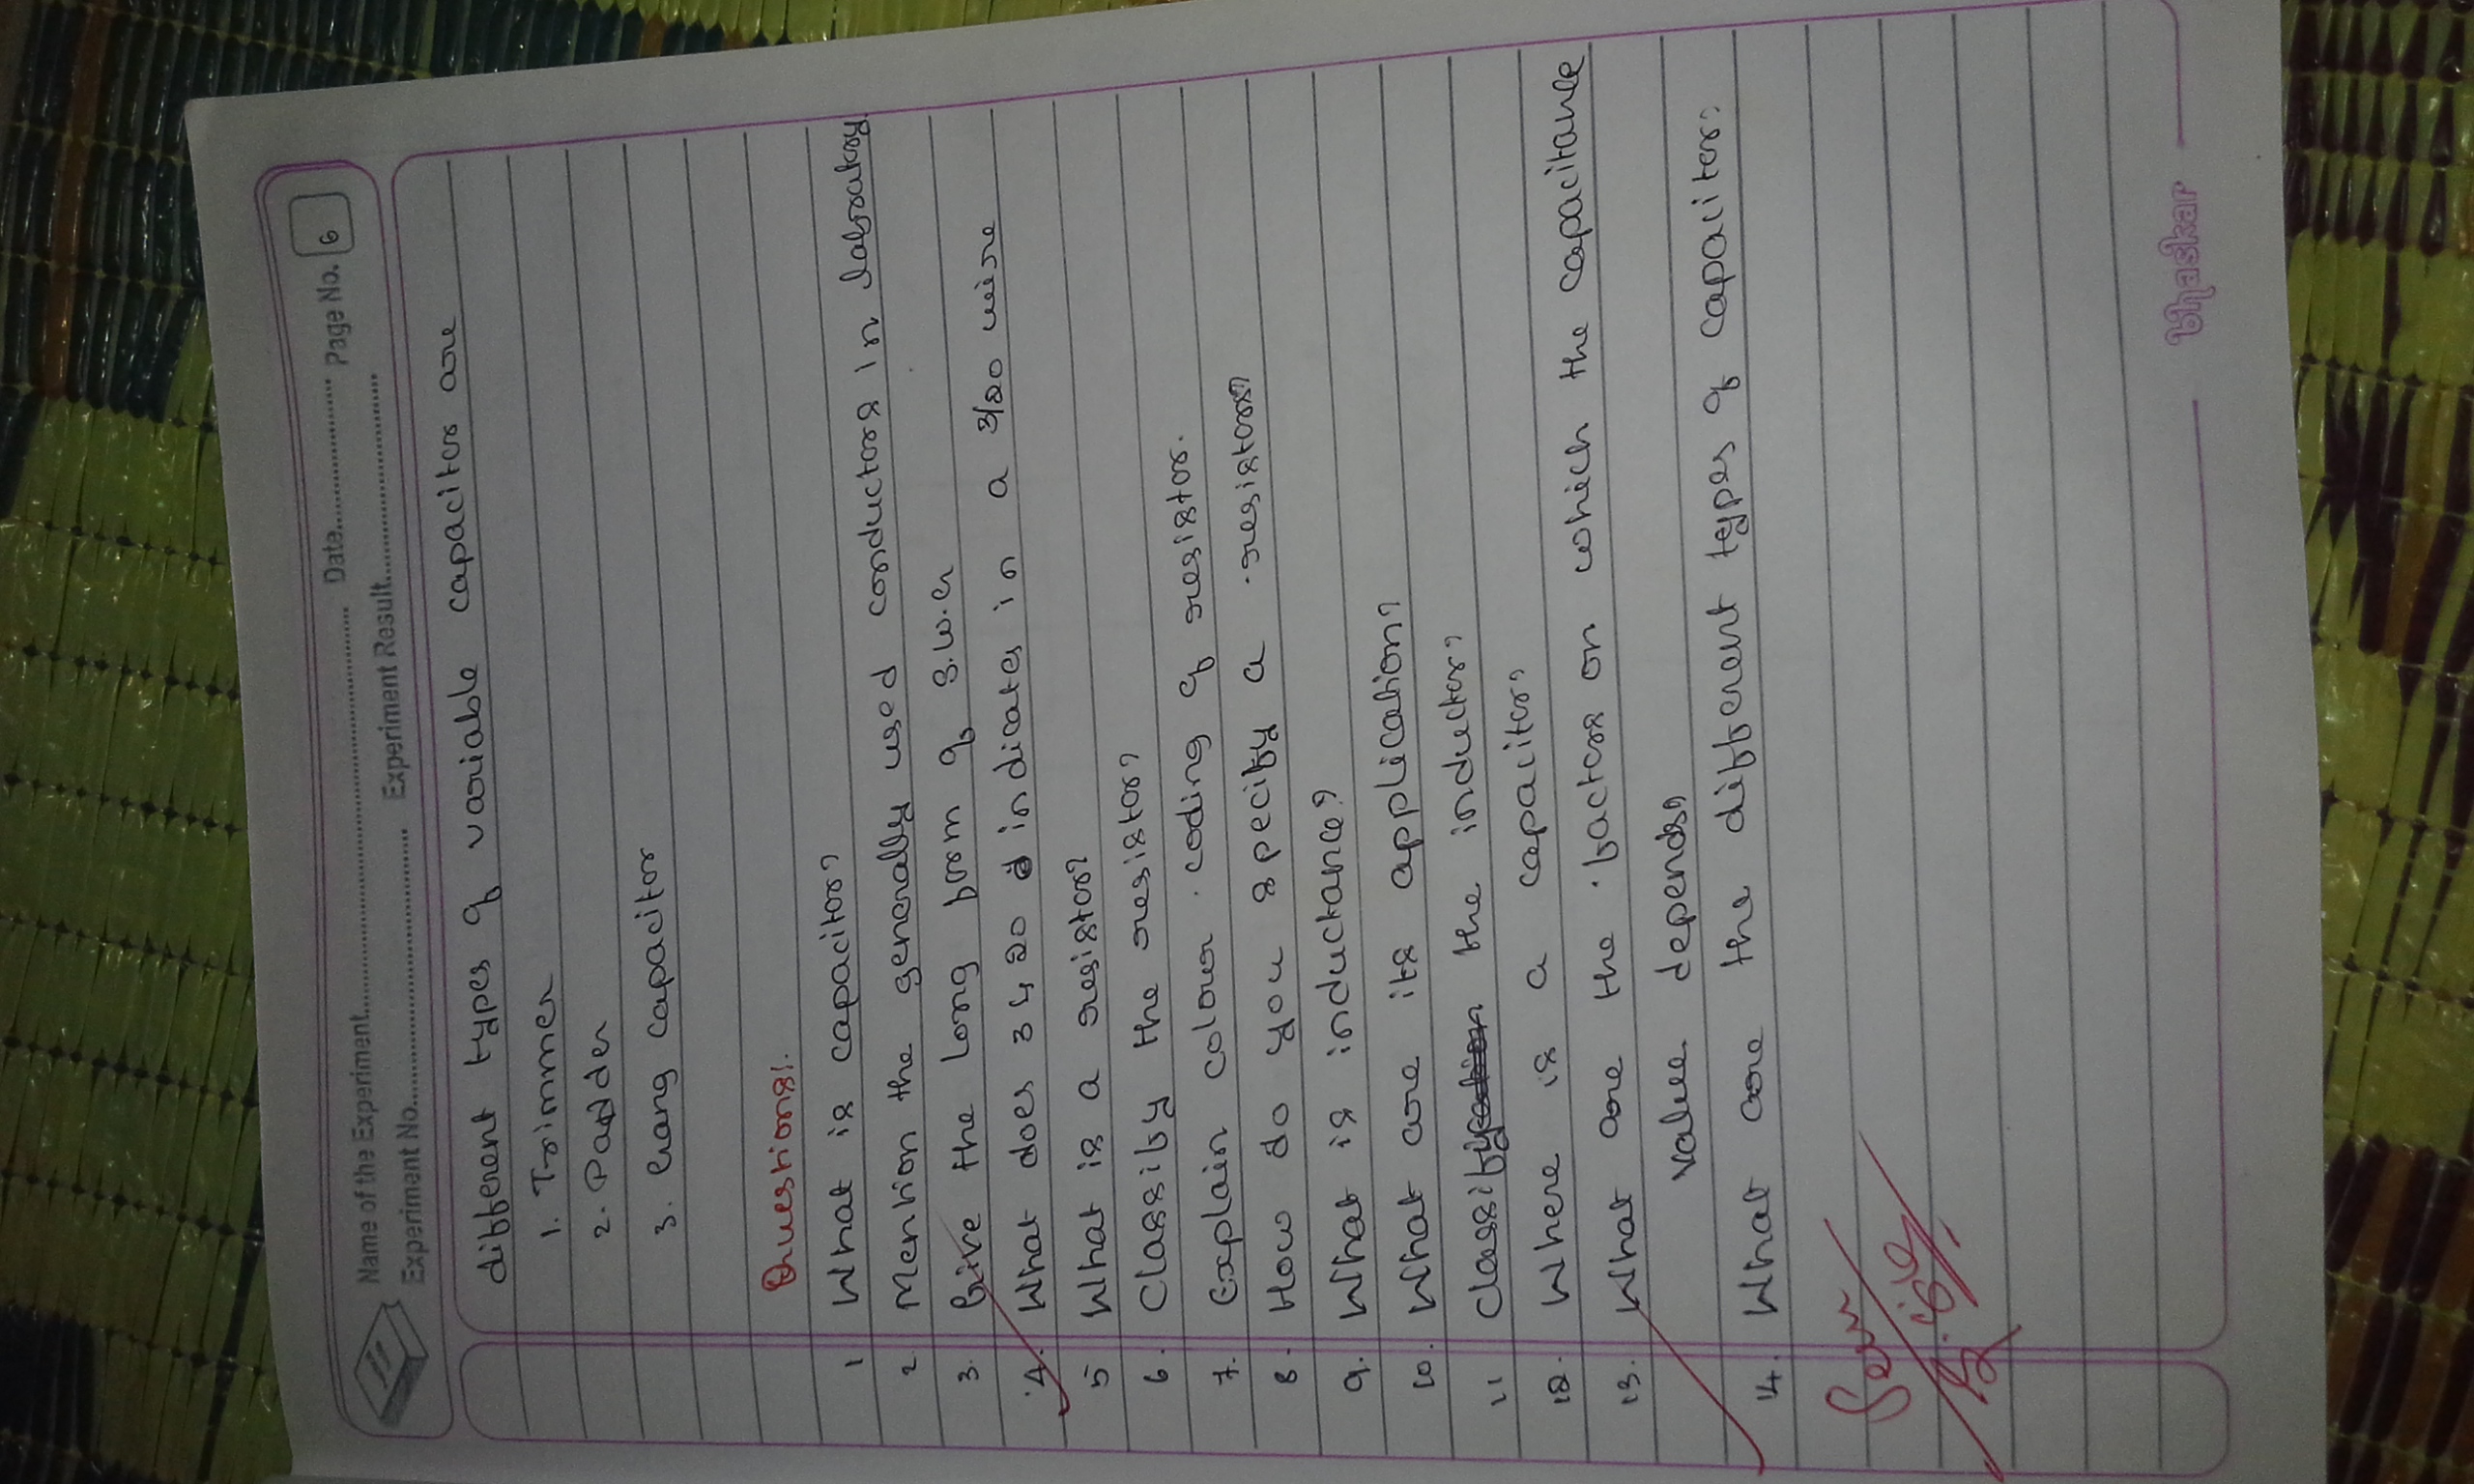 Name of the Experiment............ Date............ Page No. 6
Experiment No............ Experiment Result............
different types of variable capacitor are
1. Trimmer
2. Padder
3. Gang capacitor
Questions:
1 What is capacitor?
2 Mention the generally used conductors in labratory.
3. Give the long form of S.W.G
4. What does 3 & 20 indicates in a 3/20 wire
5 What is a resistor?
6. Classify the resistor?
7. Explain colour coding of resistor.
8. How do you specify a resistors?
9. What is inductance?
10. What are its application?
11 Classify the inductor?
12. Where is a capacitor?
13. What are the factors on which the capacitance
value depends?
14. What are the different types of capacitor?
bhaskar